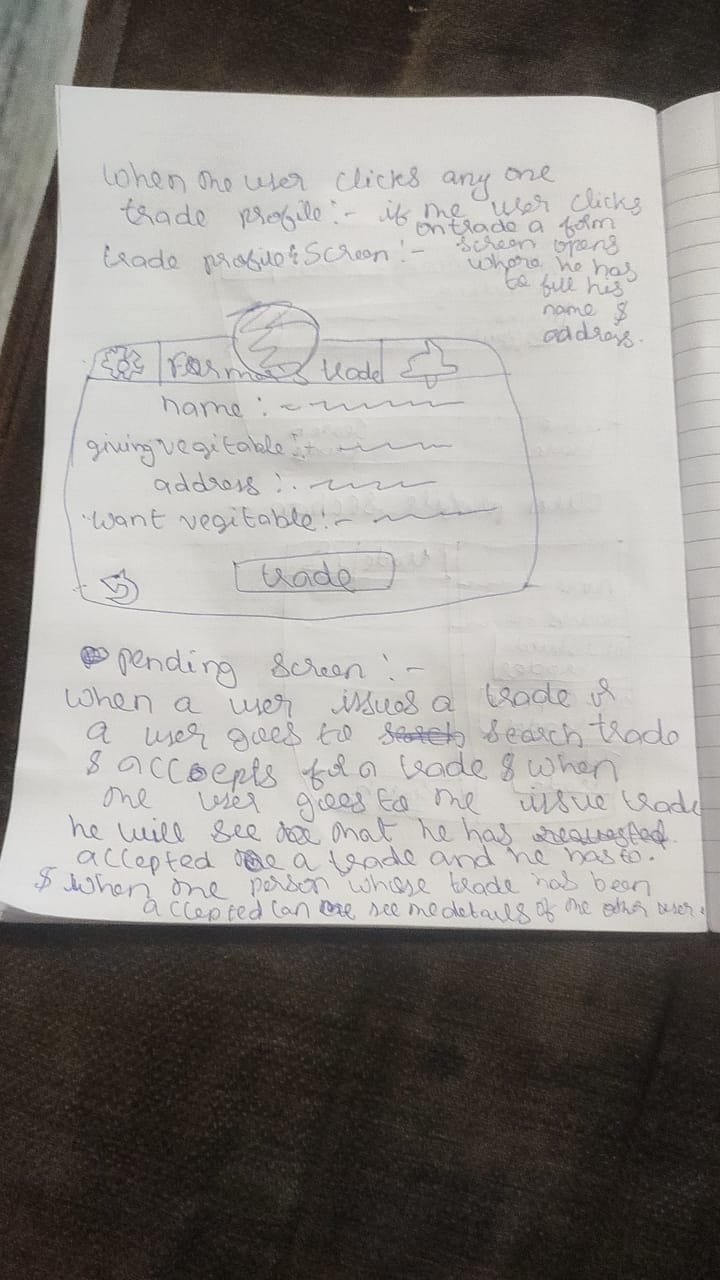 When the user clicks any one
trade profile:- if the user clicks
on trade a form
screen opens
where he has
to fill his
name &
address.
trade profile's Screen:-
Farmers trade
name:-
giving vegitable:-
address:-
want vegitable:-
trade
pending screen:-
When a user issues a trade &
a user goes to search trade
& accepts for a trade & when
the user goes to the issue trade
he will see that he has requested
accepted a trade and he has to.
& When the person whose trade has been
accepted can see the details of the other user.